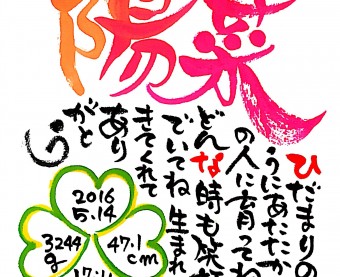 陽菜
ひだまりの
うにあたたか
の人に育ってね
どんな時も笑
でいてね 生まれ
きてくれて
あり
がと
う
2016
5.14
3244
g
47.1
cm
17:1